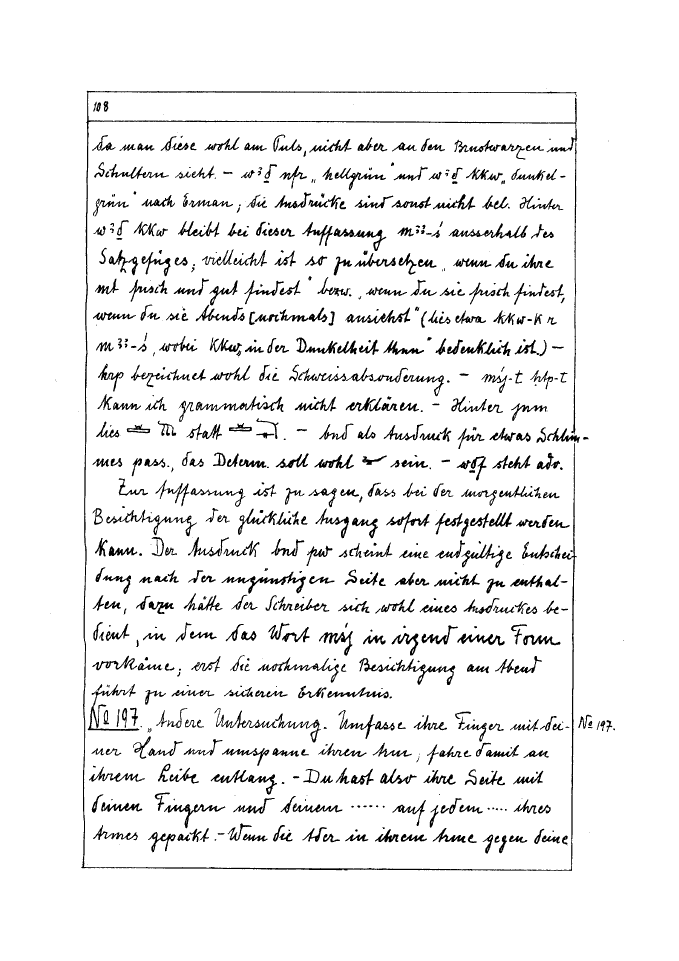 108
da man diese wohl am Puls, nicht aber an den Brustwarzen und
Schultern sieht. – wꜣḏ nfr „hellgrün" und wꜣḏ kkw „dunkel-
grün" nach Erman; die Ausdrücke sind sonst nicht bel. Hinter
wꜣḏ kkw bleibt bei dieser Auffassung mꜣꜣ-ś ausserhalb des
Satzgefüges; vielleicht ist so zu übersetzen „wenn du ihre
mt frisch und gut findest" bezw. „wenn du sie frisch findest,
wenn du sie Abends [nochmals] ansiehst" (lies etwa kkw-k r
mꜣꜣ-ś, wobei kkw „in der Dunkelheit thun" bedenklich ist.) –
hrp bezeichnet wohl die Schweissabsonderung. – mśj-t ḥtp-t
kann ich grammatisch nicht erklären. – Hinter jnm
lies statt . – bnd als Ausdruck für etwas Schlim-
mes pass., das Determ. soll wohl sein. – wdf steht adv.
Zur Auffassung ist zu sagen, dass bei der morgentlichen
Besichtigung der glückliche Ausgang sofort festgestellt werden
kann. Der Ausdruck bnd pw scheint eine endgültige Entschei
dung nach der ungünstigen Seite aber nicht zu enthal-
ten, dazu hätte der Schreiber sich wohl eines Ausdruckes be-
dient, in dem das Wort mśj in irgend einer Form
vorkäme; erst die nochmalige Besichtigung am Abend
führt zu einer sicheren Erkenntnis.
No 197. „Andere Untersuchung. Umfasse ihre Finger mit dei- No 197.
ner Hand und umspanne ihren Arm; fahre damit an
ihrem Leibe entlang. – Du hast also ihre Seite mit
deinen Fingern und deinem ...... auf jedem ..... ihres
Armes gepackt. – Wenn die Ader in ihrem Arme gegen deine